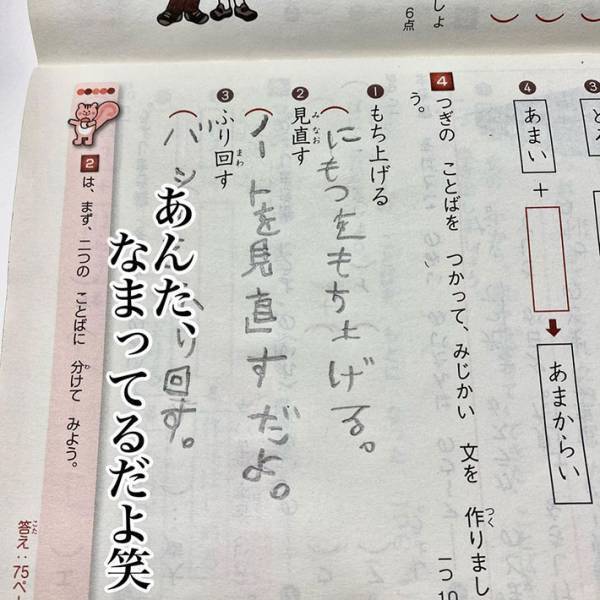 しょ
6点
③
④
あまい
+
あまからい
4
つぎの ことばを つかって、みじかい 文を 作りましょ
つく
う。
一つ10
❶もち上げる
にもつをもち上げる。
❷見直す
みなお
ノートを見直すだよ。
❸ふり回す
まわ
り回す。
あんた、
なまってるだよ笑
2 は、まず、二つの ことばに 分けて みよう。
わ
答え:75ペー
こた